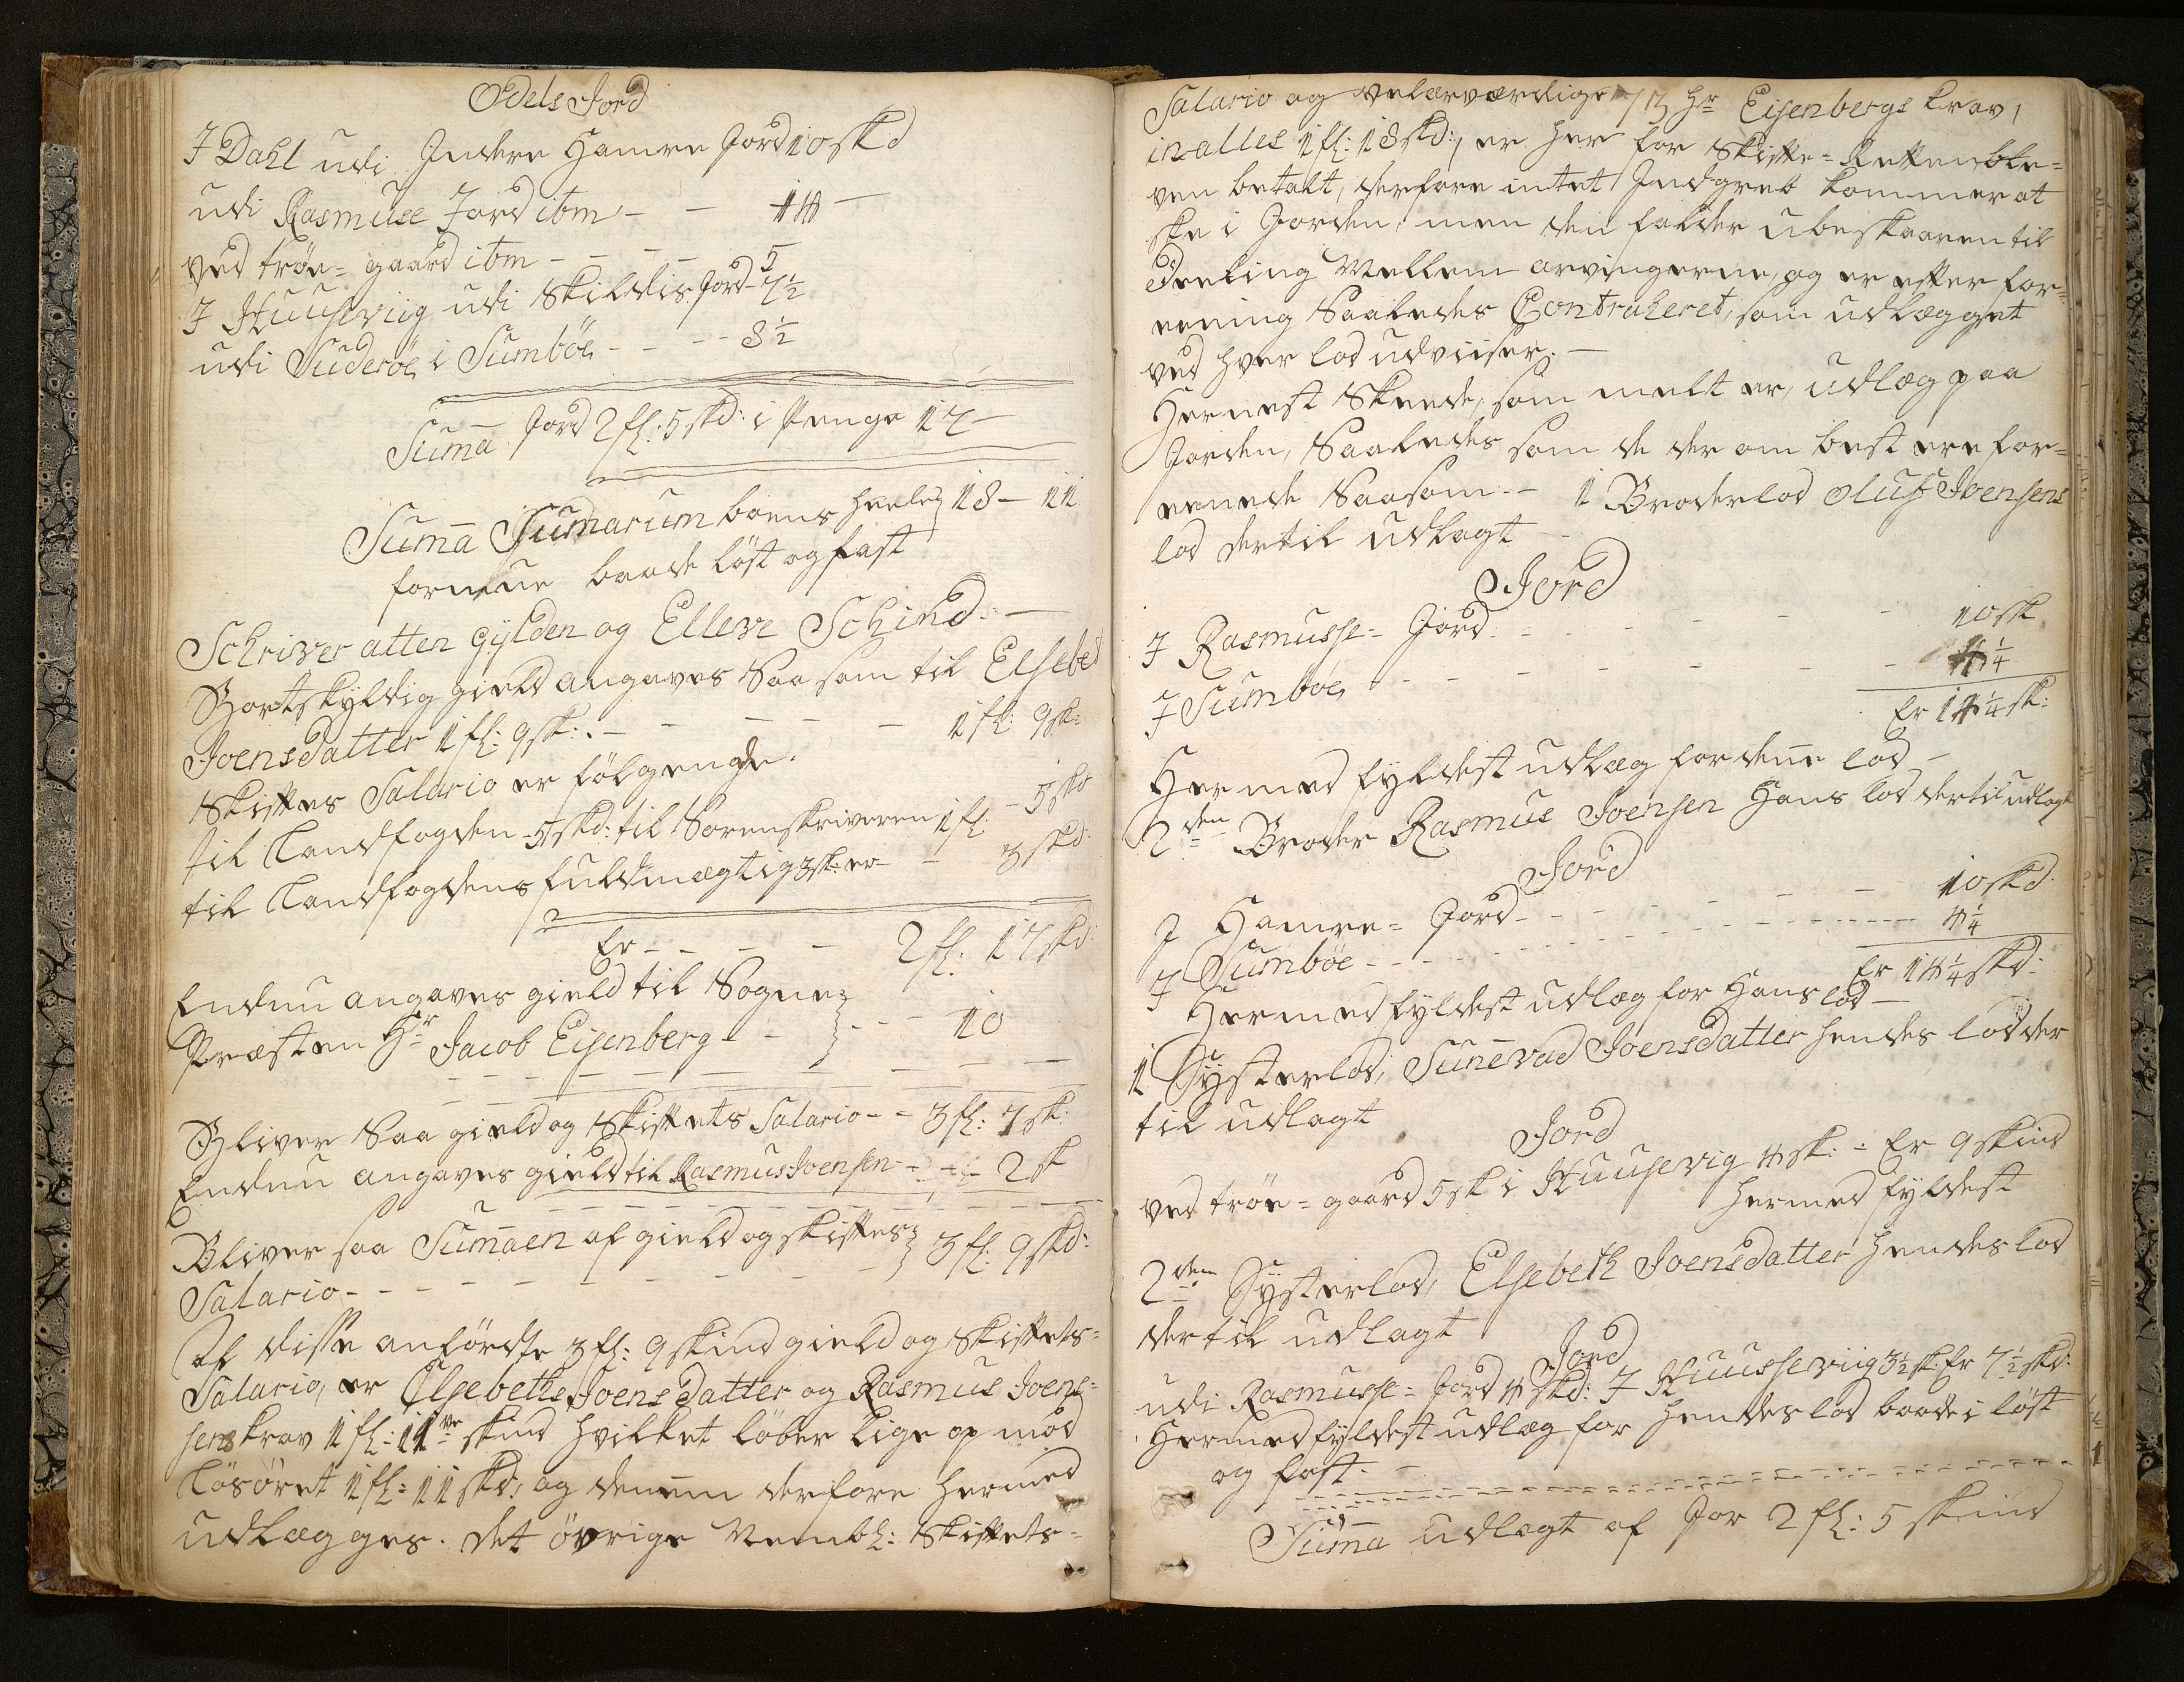 Odels Jord
I Dahl udi Indere Hamre Jord 10 skd
udi Rasmuse Jord ibm - - 14 -
ved trøe=gaard ibm - - - - 5
I Huuseviig udi Skildis Jord - 7½
udi Suderöe i Sumböe - - - - 8½
Suma Jord 2 fl: 5 skd: i Penge 17 -
Suma Sumarium boens heele 18 - 11
formue baade löst og fast
Schriver atten Gylden og Elleve Schind: -
Bortskyldig gield angaves Saasom til Elsebet
Joensdatter 1 fl: 9 sk: - - - - - 1 fl: 9 sk:
Skiftes Salario er fölgende.
til Landfogden - 5 skd: til Sorenskriveren 1 fl: - 5 skd
til Landfogdens fuldmægtig 3 sk: er - - 3 skd:
Er - - - - 2 fl: 17 skd:
Endnu angaves gield til Sogne
Præsten Hr Jacob Eisenberg - - - - - 10
Bliver Saa gield og Skiftets Salario - - 3 fl: 7 sk:
Endnu angaves gield til Rasmus Joensen - - - 2 sk
Bliver saa Sumaen af gield og skiftes 3 fl: 9 skd:
Salario - - - - - - - - - -
Af disse anfördte 3 fl: 9 skind gield og Skiftets=
Salario, er Elsebeths Joens Datter og Rasmus Joens=
sens krav 1 fl: 11ve skind hvilket löber lige op mod
Lösöret 1 fl: 11 skd: og denem derfore hermed
udlægges. Det övrige Nembl: Skiftets=
Salario og velærværdige Hr Eisenbergs krav,
in alles 1 fl: 18 skd:, er her for Skifte=Retten ble=
ven betalt, derfore intet Indgreb kommer at
ske i Jorden, men den falder ubeskaaren til
Deeling Mellem arvingerne, og er efter for=
eening Saaledes Contraheret, som udlægget
ved hver lod udviiser. -
Hernest Skeede, som melt er, udlæg paa
Jorden, Saaledes som de der om best ere for=
eenede Saasom - 1 Broderlod Oluf Joensens
lod dertil udlagt -
Jord
I Rasmusse=Jord - - - - - - 10 sk
I Sumböe - - - - - - 4¼
Er 14¼ sk:
Hermed fyldest udlæg for dene lod -
2den Broder Rasmus Joensen Hans lod dertil udlagt
Jord
I Hamre=Jord - - - - - - 10 skd.
I Sumböe - - - - - - 4¼
Er 14¼ skd:
Hermed fyldest udlæg for Hans lod -
1 Systerlod, Sunevad Joensdatter hendes lod der
til udlagt
Jord
ved trøe=gaard 5 sk i Huusevig 4 sk: = Er 9 skind
hermed fyldest
2den Systerlod, Elsebeth Joensdatter hendes lod
dertil udlagt
Jord
udi Rasmusse=Jord 4 skd: I Huusseviig 3½ sk: Er 7½ skd:
Hermed fyldest udlæg for hendes lod baade i löst
og fast. -
Suma udlagt af Jor 2 fl: 5 skind